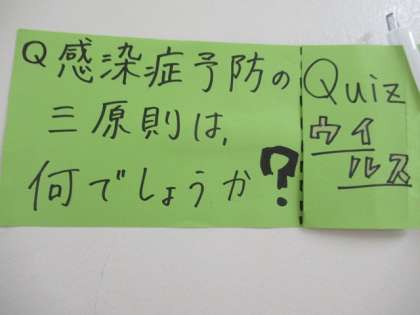 Q 感染症予防の
三原則は,
何でしょうか?
Quiz
ウイ
ルス